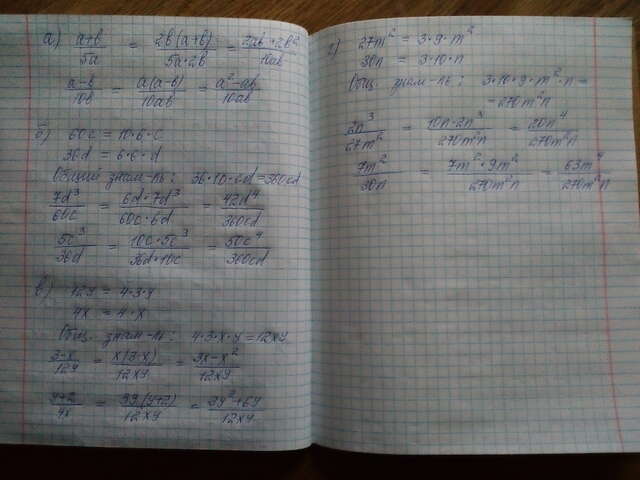 а) (a+b)/5a = 2b(a+b)/5a·2b = 2ab+2b²/10ab
(a-b)/10b = a(a-b)/10ab = a²-ab/10ab
б) 60c = 10·6·c
36d = 6·6·d
Общий знам-ль: 36·10·c·d=360cd
7d³/60c = 6d·7d³/60c·6d = 42d⁴/360cd
5c³/36d = 10c·5c³/36d·10c = 50c⁴/360cd
в) 12y = 4·3·y
4x = 4·x
Общ. знам-ль: 4·3·x·y=12xy
3-x/12y = x(3-x)/12xy = 3x-x²/12xy
y+2/4x = 3y(y+2)/12xy = 3y²+6y/12xy
г) 27m² = 3·9·m²
30n = 3·10·n
Общ. знам-ль: 3·10·9·m²·n =
=270m²n
2n³/27m² = 10n·2n³/270m²n = 20n⁴/270m²n
7m²/30n = 7m²·9m²/270m²n = 63m⁴/270m²n